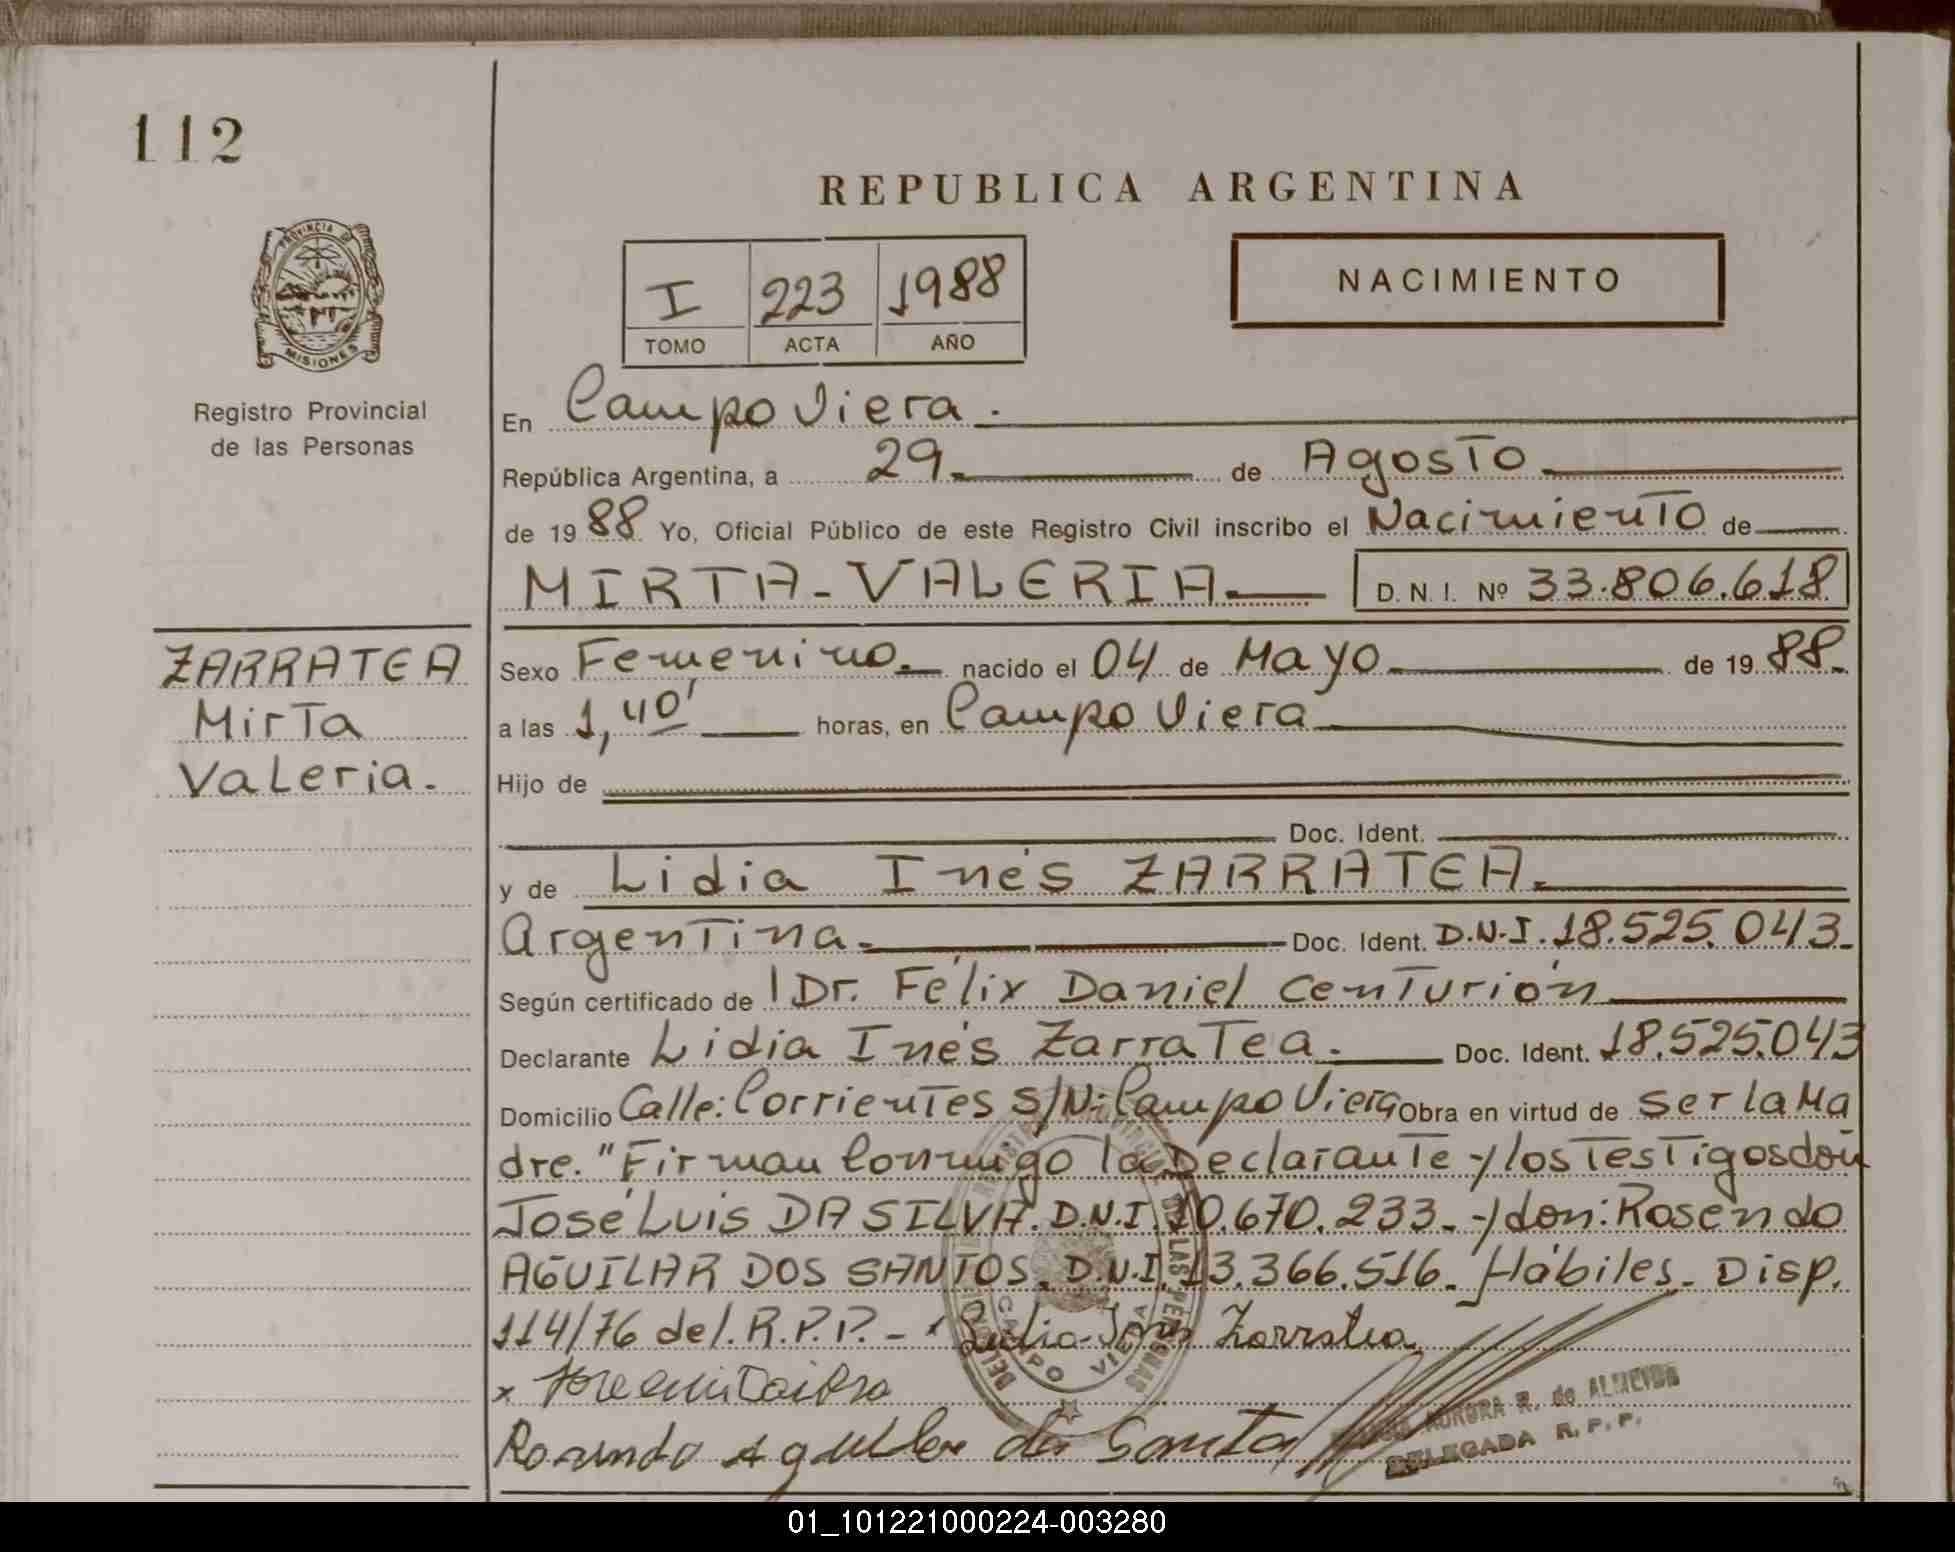 112
REPUBLICA ARGENTINA
PROVINCIA DE
MISIONES
Registro Provincial
de las Personas
I 223 1988
TOMO ACTA AÑO
NACIMIENTO
En Campo Viera.
República Argentina, a 29 de Agosto
de 19 88 Yo, Oficial Público de este Registro Civil inscribo el Nacimiento de
MIRTA-VALERIA D. N. I. Nº 33.806.618
ZARRATEA
Mirta
Valeria.
Sexo Femenino. nacido el 04 de Mayo de 19 88.
a las 1,40' horas, en Campo Viera
Hijo de
Doc. Ident.
y de Lidia Inés ZARRATEA.
Argentina. Doc. Ident. D.N.I. 18.525.043.
Según certificado de Dr. Félix Daniel Centurión
Declarante Lidia Inés Zarratea. Doc. Ident. 18.525.043
Domicilio Calle: Corrientes S/N: Campo Viera Obra en virtud de ser la Ma
dre. "Firman Conmigo la Declarante y los Testigos don
José Luis DA SILVA. D.N.I. 10.670.233. y don: Rosendo
AGUILAR DOS SANTOS. D.N.I. 13.366.516. Hábiles. Disp.
114/76 del. R.P.P. - x Lidia Ines Zarratea
x
Rosendo Aguilar do Santo
CAMPO VIERA
AURORA R. de ALMEIDA
DELEGADA R. P. P.
01_101221000224-003280